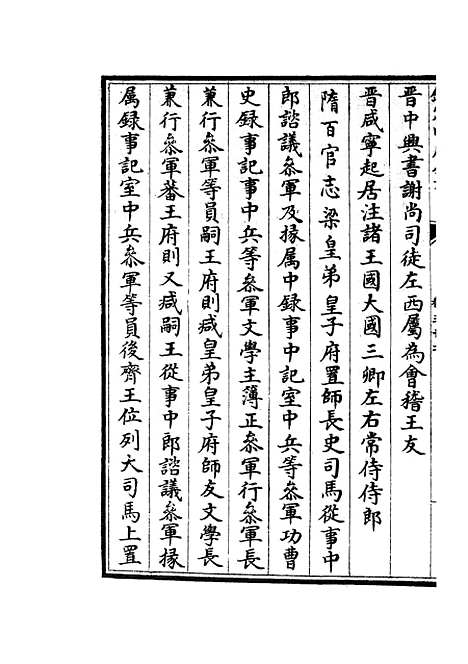 晋中興書謝尚司徒左西屬為會稽王友
晋咸寧起居注諸王國大國三卿左右常侍侍郎
隋百官志梁皇弟皇子府置師長史司馬從事中
郎諮議叅軍及掾属中録事中記室中兵等叅軍功曹
史録事記事中兵等叅軍文學主簿正叅軍行叅軍長
兼行叅軍等員嗣王府則减皇弟皇子府師友文學長
兼行叅軍蕃王府則又减嗣王從事中郎諮議叅軍掾
属録事記室中兵叅軍等員後齊王位列大司馬上置